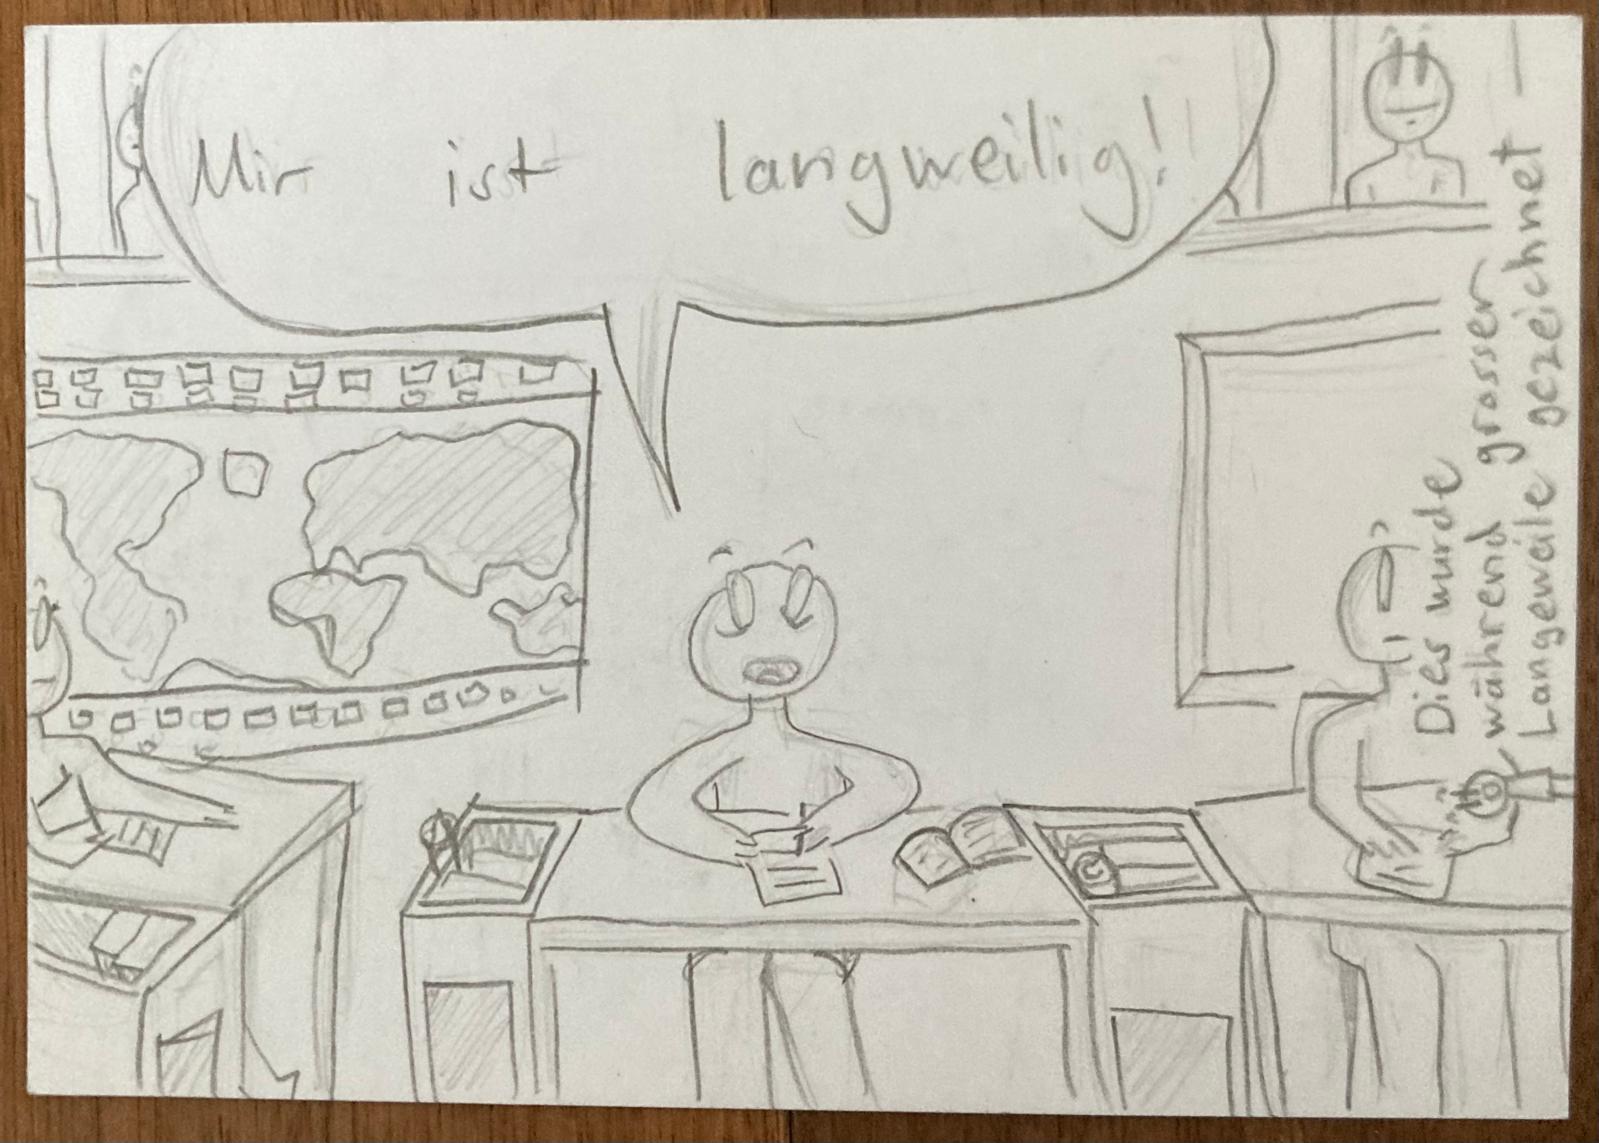 Mir ist langweilig!
Dies wurde
während grosser
Langeweile gezeichnet